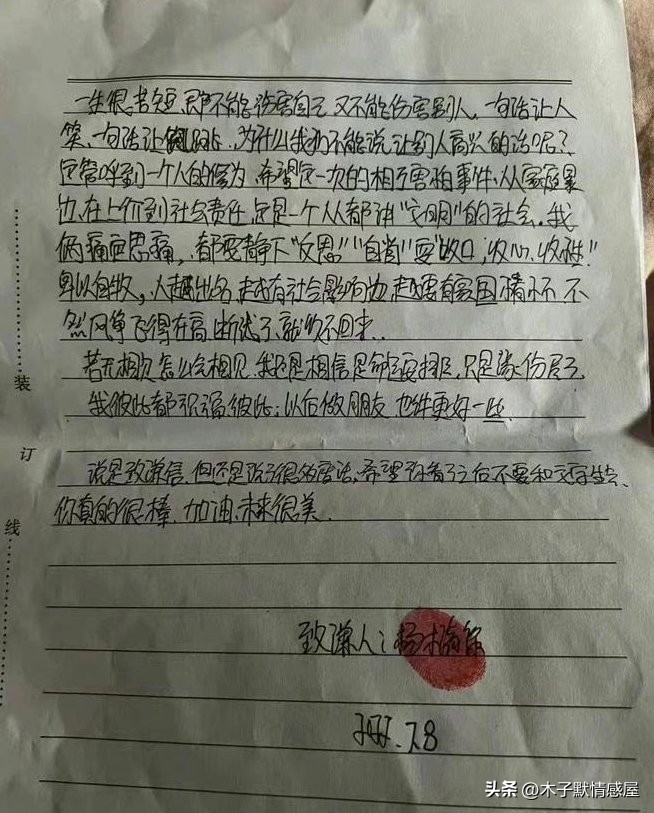 一生很短,即不能伤害自己 又不能伤害别人,一句话让人
笑,一句话让人跳,为什么我们不能说让别人高兴的话呢?
一个人的 希望 一次的相互 事件,从家庭
边,在上 到社会责任,足是一个人人都讲“文明”的社会,我
俩痛定思痛,都要静下“反思”“自省”要“收口,收心,收性”
卑以自牧,人越出名,越有社会影响力 越要有 不
然风筝飞得在高,断线了,就收不回来.
若无相欠怎么会相见,我还是相信是命运安排,只是缘份尽了,
我彼此都祝福彼此;以后做朋友 也许更好一些.
说是致谦信,但还是说了很多废话,希望你看了之后不要和 生气、
你真的很棒,加油,未来很美.
致谦人:杨
7.8
装
订
线
头条 @木子默情感屋